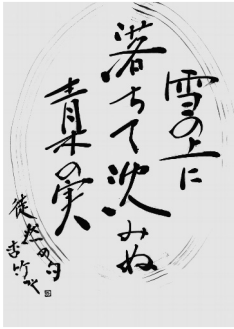 雪の上に
落ちて沈みぬ
青木の実
徒然の句